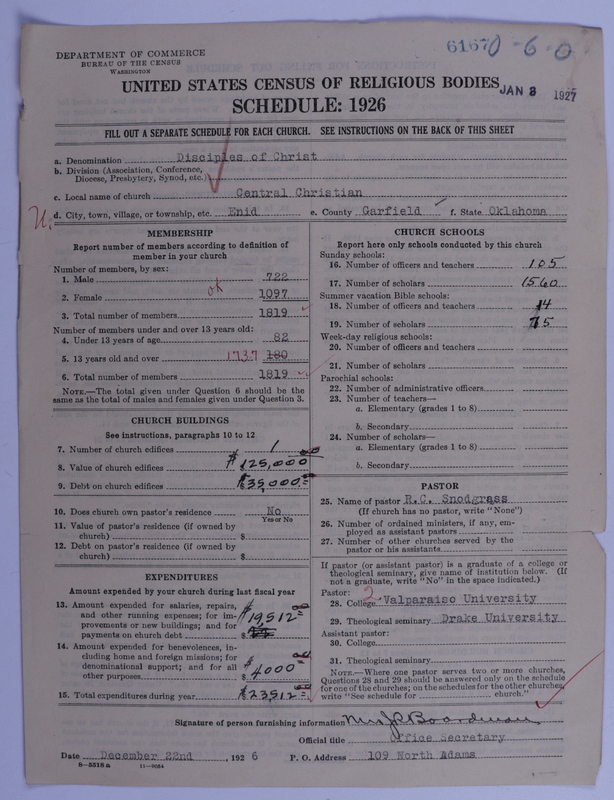 61670-6-0
DEPARTMENT OF COMMERCE
BUREAU OF THE CENSUS
WASHINGTON
UNITED STATES CENSUS OF RELIGIOUS BODIES
JAN 3 1927
SCHEDULE: 1926
FILL OUT A SEPARATE SCHEDULE FOR EACH CHURCH. SEE INSTRUCTIONS ON THE BACK OF THIS SHEET
a. Denomination Disciples of Christ
b. Division (Association, Conference,
Diocese, Presbytery, Synod, etc.)
c. Local name of church Central Christian
U. d. City, town, village, or township, etc. Enid e. County Garfield f. State Oklahoma
MEMBERSHIP
Report number of members according to definition of
member in your church
Number of members, by sex:
1. Male 722
2. Female ok 1097
3. Total number of members 1819
Number of members under and over 13 years old:
4. Under 13 years of age 82
5. 13 years old and over 1737 180
6. Total number of members 1819
NOTE.—The total given under Question 6 should be the
same as the total of males and females given under Question 3.
CHURCH BUILDINGS
See instructions, paragraphs 10 to 12
7. Number of church edifices 1
8. Value of church edifices $125,000 00
9. Debt on church edifices $35,000 00
10. Does church own pastor's residence No
Yes or No
11. Value of pastor's residence (if owned by
church) $
12. Debt on pastor's residence (if owned by
church) $
EXPENDITURES
Amount expended by your church during last fiscal year
13. Amount expended for salaries, repairs,
and other running expenses; for im-
provements or new buildings; and for
payments on church debt $19512 00
14. Amount expended for benevolences, in-
cluding home and foreign missions; for
denominational support; and for all
other purposes $4000 00
15. Total expenditures during year $23512 00
CHURCH SCHOOLS
Report here only schools conducted by this church
Sunday schools:
16. Number of officers and teachers 105
17. Number of scholars 1560
Summer vacation Bible schools:
18. Number of officers and teachers 14
19. Number of scholars 75
Week-day religious schools:
20. Number of officers and teachers
21. Number of scholars
Parochial schools:
22. Number of administrative officers
23. Number of teachers—
a. Elementary (grades 1 to 8)
b. Secondary
24. Number of scholars—
a. Elementary (grades 1 to 8)
b. Secondary
PASTOR
25. Name of pastor R.C. Snodgrass
(If church has no pastor, write "None")
26. Number of ordained ministers, if any, em-
ployed as assistant pastors
27. Number of other churches served by the
pastor or his assistants
If pastor (or assistant pastor) is a graduate of a college or
theological seminary, give name of institution below. (If
not a graduate, write "No" in the space indicated.)
Pastor: 2
28. College Valparaiso University
29. Theological seminary Drake University
Assistant pastor:
30. College
31. Theological seminary
NOTE.—Where one pastor serves two or more churches,
Questions 28 and 29 should be answered only on the schedule
for one of the churches; on the schedules for the other churches,
write "See schedule for church."
Signature of person furnishing information Mrs J.R. Boardman
Official title Office Secretary
Date December 22nd, 1926 P. O. Address 109 North Adams
8—5518 a 11—9084